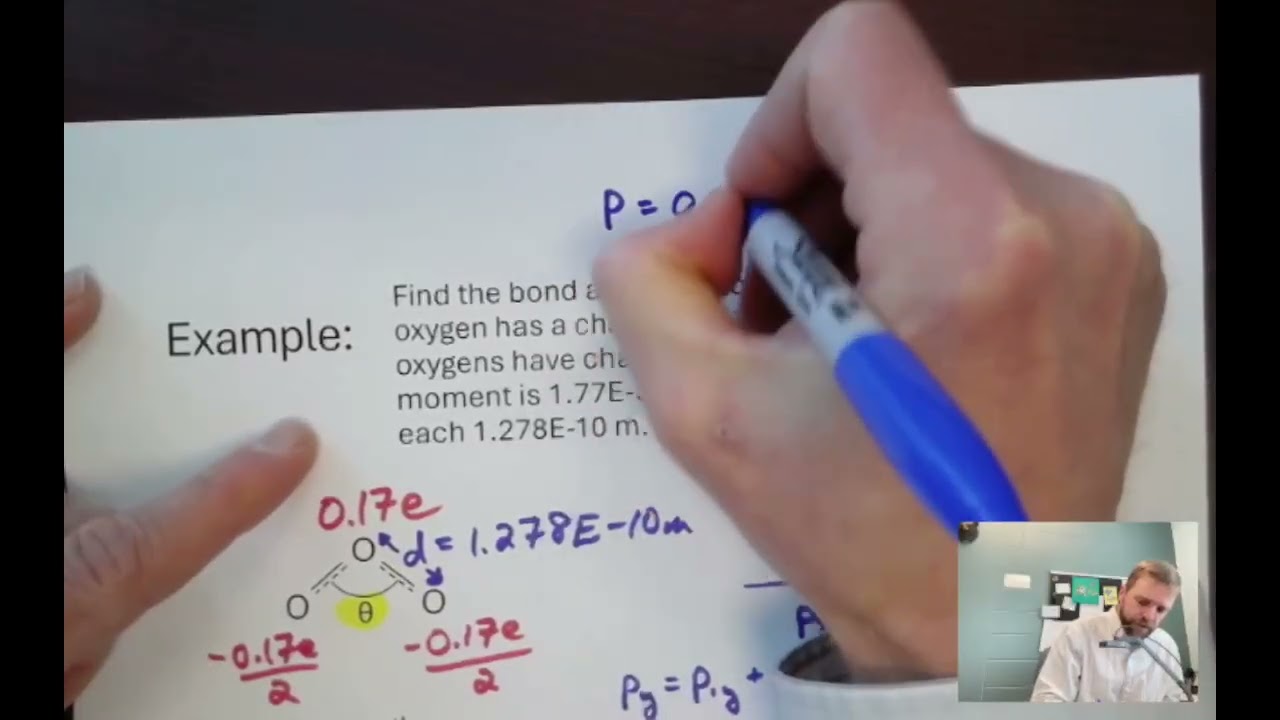 P = 0
Find the bond
Example:
oxygen has a
oxygens have
moment is 1.77E-
each 1.278E-10 m.
0.17e
O d = 1.278E-10m
O θ O
-0.17e/2 -0.17e/2
Py = P1y +